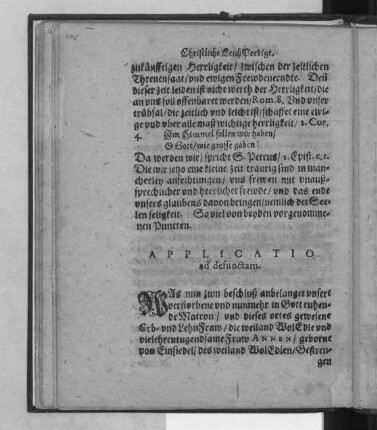 Christliche LeichPredigt.
zukünfftigen Herrligkeit/ zwischen der zeitlichen
Threnensaat/ vnd ewigen Frewdenerndte. Deñ
dieser zeit leiden ist nicht werth der Herrligkeit/ die
an vns soll offenbaret werden/ Rom. 8. Vnd vnser
trübsal/ die zeitlich vnd leicht ist/ schaffet eine ewi-
ge vnd vber alle maß wichtige herrligkeit/ 2. Cor.
4. Im Himmel sollen wir haben/
O Gott/ wie grosse gaben!
Da werden wir/ spricht S. Petrus/ 1. Epist. c. 1.
Die wir jetzo eine kleine zeit traurig sind in man-
cherley anfechtungen/ vns frewen mit vnauß-
sprechlicher vnd herrlicher frewde/ vnd das ende
vnsers glaubens davon bringen/ nemlich der See-
len seligkeit. So viel von beyden vorgenomme-
nen Puncten.
APPLICATIO
ad defunctam.
WAs nun zum beschluß anbelanget vnsere
verstorbene vnd nunmehr in Gott ruhen-
de Matron/ vnd dieses ortes gewesene
Erb- vnd LehnFraw/ die weiland WolEdle vnd
vielehrentugendsame Fraw ANNEN/ geborne
von Einsiedel/ des weiland WolEdlen/ Gestren-
gen